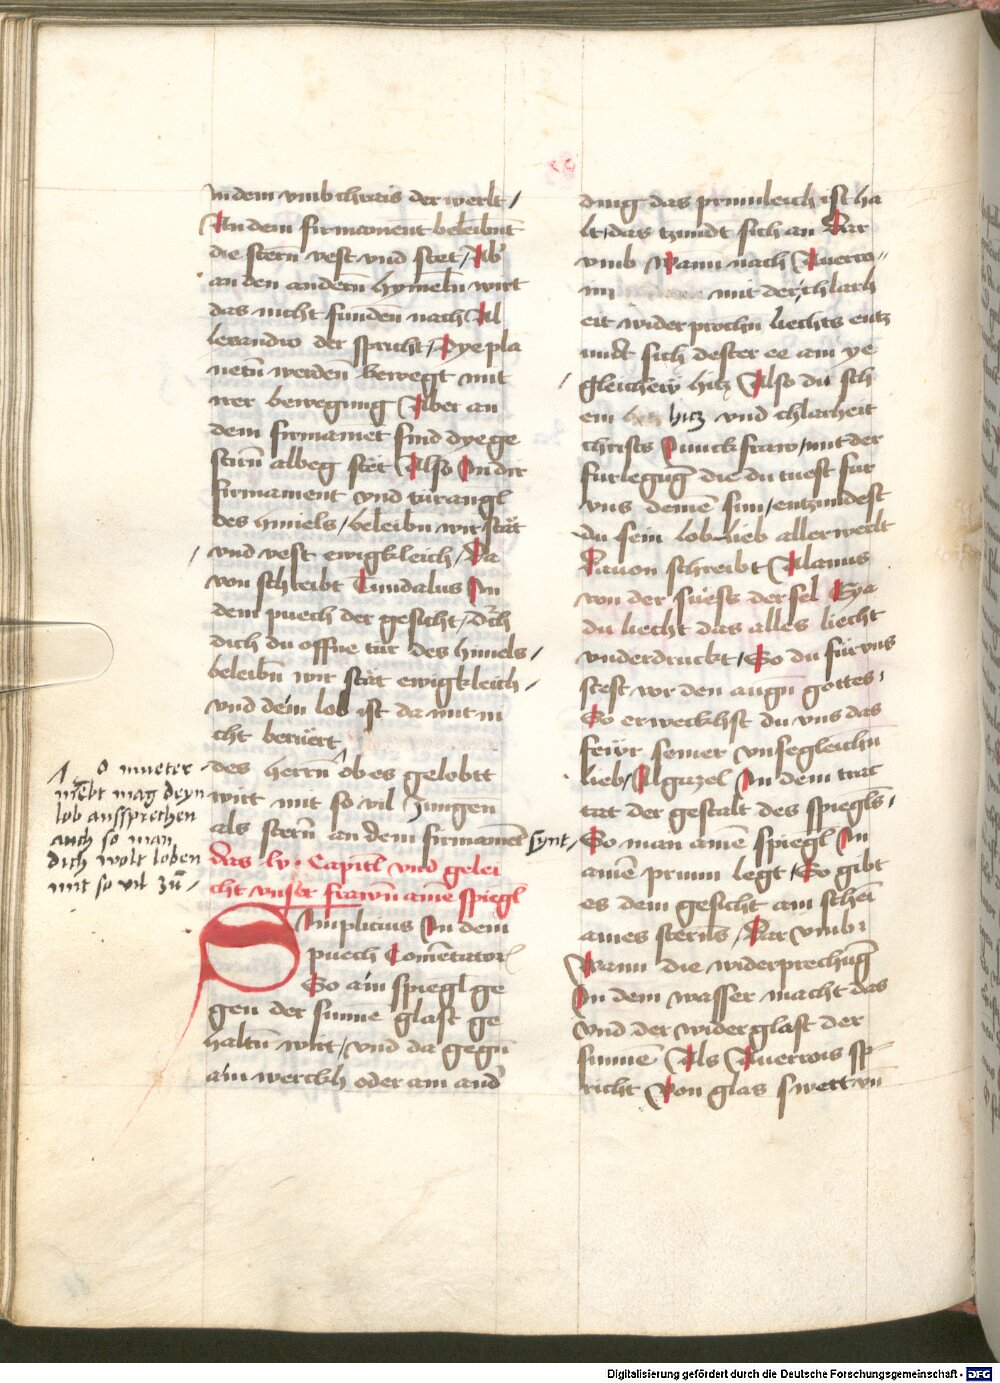 in dem vmbchrais der werlt /
An dem firmament beleibnt
die stern vest vnd stet / Ab
an den andern hymeln wirt
das nicht funden nach Al
lexandro der spricht / Dye pla
netn werden bewegt mit
irer bewegung Aber an
dem firmamet sind dye ge
stirn albeg stet Also In dir
firmament vnd türangl
des himels / beleibn wir stät
vnd vest ewigkleich / Da
von schreibt Tundalus In
dem puech der gesicht / Dch
dich du offne tür des himels /
beleibn wir stät ewigkleich /
vnd dein lob ist da mit ni
cht berüert
des herrn ob es gelobtt
wirt mit so vil Zungen
als stern an dem firmamet synt /
1. O mueter
nicht mag deyn
lob aussprechen
auch so man
dich wolt loben
mit so vil zu /
das lv. Capitl vnd gelei
cht vnser frawn ame spiegl
Simplicius In dem
puech Comentator
So ain spiegl ge
gen der sunne glast ge
haltn wirt / vnd da gegn
ain werckh oder am and
ding das prinnleich ist ha
lt / das tzundt sich an Dar
vmb Wann nach Auerro
im mit der chlarh
eit wider prochn liechts entz
undt sich dester ee am ye
gleichew hitz Also du sch
ein hitz vnd chlarheit
christs Junckfraw / mit der
furlegung die du tuest fur
vns deine sun / entzundest
du sein lob lieb aller werlt
Dauon schreibt Alanus
von der suess der sel Eya
du liecht das alles liecht
vnderdruckt / So du für vns
stest vor den augn gottes /
So erweckhst du vns das
feiyr seiner vnsegleichn
lieb / Algazel In dem trac
tat der gestalt des spiegls /
So man ame spiegl In
ame prunn legt / So gibt
es dem gesicht am schei
ames sterns / Dar vmb
Wann die widerprechung
In dem wasser macht das
vnd der widerglast der
sunne Als Auerrois sp
richt Von glas swert vn